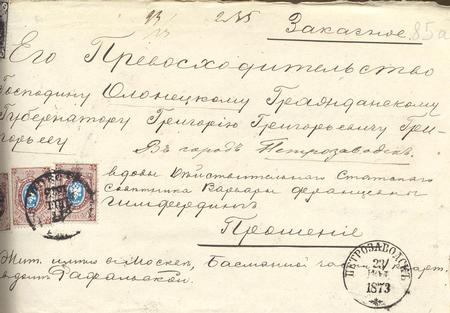 Заказное 85а
Его Превосходительство
Господину Олонецкому Гражданскому
Губернатору Григорію Григорьевичу Гри-
горьеву
Въ городъ Петрозаводскъ.
вдовы Действительного Статского
Советника Варвары Францевны
Гильфердингъ
Прошеніе
Жит. имею въ Москве, Басманной части
в доме
ПЕТРОЗАВОДСКЪ
1873